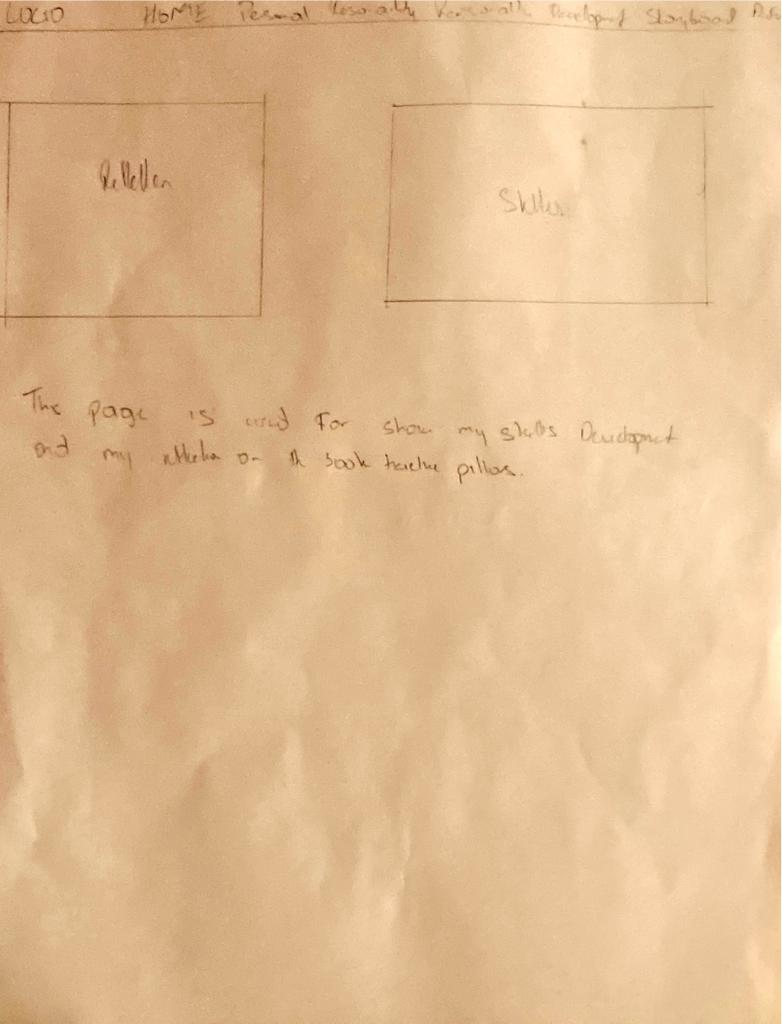 LOGO HOME Personal Personality Development Storyboard
Reflection
Skills
The page is used for show my skills Development
and my reflection on the book twelve pillars.